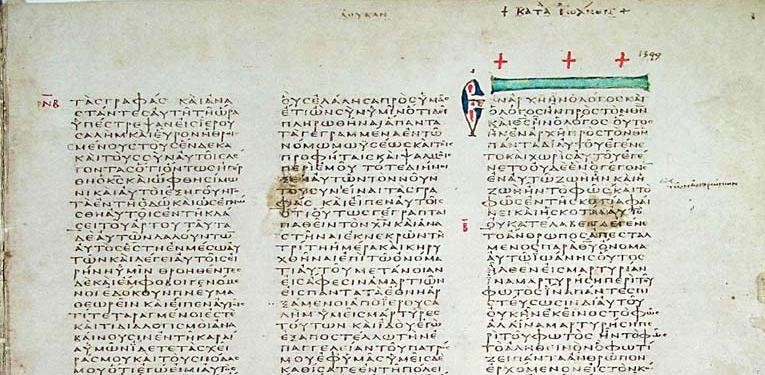 ΛΟΥΚΑΝ
+ ΚΑΤΑ ΙΩΑΝΝΗΝ +
1349
Ν̅Β̅
ΤΑΣΓΡΑΦΑΣ ΚΑΙΑΝΑ
ΣΤΑΝΤΕΣΑΥΤΗΤΗΩΡΑ
ΥΠΕΣΤΡΕΨΑΝΕΙΣΙΕΡΟΥ
ΣΑΛΗΜΚΑΙΕΥΡΟΝΗΘΡΟΙ
ΣΜΕΝΟΥΣΤΟΥΣΕΝΔΕΚΑ
ΚΑΙΤΟΥΣΣΥΝΑΥΤΟΙΣΛΕ
ΓΟΝΤΑΣΟΤΙΟΝΤΩΣΗΓΕΡ
ΘΗΟΚ̅Σ̅ΚΑΙΩΦΘΗΣΙΜΩ
ΝΙΚΑΙΑΥΤΟΙΕΞΗΓΟΥΝΤΟ
ΤΑΕΝΤΗΟΔΩΚΑΙΩΣΕΓΝΩ
ΣΘΗΑΥΤΟΙΣΕΝΤΗΚΛΑ
ΣΕΙΤΟΥΑΡΤΟΥΤΑΥΤΑ
ΔΕΑΥΤΩΝΛΑΛΟΥΝΤΩ
ΑΥΤΟΣΕΣΤΗΕΝΜΕΣΩΑΥ
ΤΩΝΚΑΙΛΕΓΕΙΑΥΤΟΙΣΕΙ
ΡΗΝΗΥΜΙΝΘΡΟΗΘΕΝΤΕΣ
ΔΕΚΑΙΕΜΦΟΒΟΙΓΕΝΟΜΕ
ΝΟΙΕΔΟΚΟΥΝΠΝΕΥΜΑ
ΘΕΩΡΕΙΝΚΑΙΕΙΠΕΝΑΥΤΟΙΣ
ΤΙΤΕΤΑΡΑΓΜΕΝΟΙΕΣΤΕ
ΚΑΙΤΙΔΙΑΛΟΓΙΣΜΟΙΑΝΑ
ΒΑΙΝΟΥΣΙΝΕΝΤΗΚΑΡΔΙ
ΑΥΜΩΝΙΔΕΤΕΤΑΣΧΕΙ
ΡΑΣΜΟΥΚΑΙΤΟΥΣΠΟΔΑΣ
ΜΟΥΟΤΙΕΓΩΕΙΜΙΑΥΤΟΣ
ΟΥΣΕΛΑΛΗΣΑΠΡΟΣΥΜΑΣ
ΕΤΙΩΝΣΥΝΥΜΙΝΟΤΙΔΕΙ
ΠΛΗΡΩΘΗΝΑΙΠΑΝΤΑ
ΤΑΓΕΓΡΑΜΜΕΝΑΕΝΤΩ
ΝΟΜΩΜΩΥΣΕΩΣΚΑΙΤΟΙΣ
ΠΡΟΦΗΤΑΙΣΚΑΙΨΑΛΜΟΙΣ
ΠΕΡΙΕΜΟΥΤΟΤΕΔΙΗΝΟΙ
ΞΕΝΑΥΤΩΝΤΟΝΝΟΥΝ
ΤΟΥΣΥΝΕΙΝΑΙΤΑΣΓΡΑ
ΦΑΣΚΑΙΕΙΠΕΝΑΥΤΟΙΣ
ΟΤΙΟΥΤΩΣΓΕΓΡΑΠΤΑΙ
ΠΑΘΕΙΝΤΟΝΧ̅Ν̅ΚΑΙΑΝΑ
ΣΤΗΝΑΙΕΚΝΕΚΡΩΝΤΗ
ΤΡΙΤΗΗΜΕΡΑΚΑΙΚΗΡΥ
ΧΘΗΝΑΙΕΠΙΤΩΟΝΟΜΑ
ΤΙΑΥΤΟΥΜΕΤΑΝΟΙΑΝ
ΕΙΣΑΦΕΣΙΝΑΜΑΡΤΙΩΝ
ΕΙΣΠΑΝΤΑΤΑΕΘΝΗΑΡ
ΞΑΜΕΝΟΙΑΠΟΙΕΡΟΥΣΑ
ΛΗΜΥΜΕΙΣΜΑΡΤΥΡΕΣ
ΤΟΥΤΩΝΚΑΙΙΔΟΥΕΓΩ
ΕΞΑΠΟΣΤΕΛΛΩΤΗΝΕ
ΠΑΓΓΕΛΙΑΝΤΟΥΠΑΤΡΟΣ
ΜΟΥΕΦΥΜΑΣΥΜΕΙΣΔΕ
ΚΑΘΙΣΑΤΕΕΝΤΗΠΟΛΕΙ
ΕΝΑΡΧΗΗΝΟΛΟΓΟΣΚΑΙ
ΟΛΟΓΟΣΗΝΠΡΟΣΤΟΝΘ̅Ν̅
ΚΑΙΘ̅Σ̅ΗΝΟΛΟΓΟΣ ΟΥΤΟΣ
ΗΝΕΝΑΡΧΗΠΡΟΣΤΟΝΘ̅Ν̅
ΠΑΝΤΑΔΙΑΥΤΟΥΕΓΕΝΕ
ΤΟΚΑΙΧΩΡΙΣΑΥΤΟΥΕΓΕ
ΝΕΤΟΟΥΔΕΕΝΟΓΕΓΟΝΕΝ
ΕΝΑΥΤΩΖΩΗΗΝΚΑΙΗ
ΖΩΗΗΝΤΟΦΩΣΚΑΙΤΟ
ΤΩΝΑΝΘΡΩΠΩΝ
ΦΩΣΕΝΤΗΣΚΟΤΙΑΦΑΙ
ΝΕΙΚΑΙΗΣΚΟΤΙΑΑΥΤΟ
Β̅
ΟΥΚΑΤΕΛΑΒΕΝΕΓΕΝΕ
ΤΟΑΝΘΡΩΠΟΣΑΠΕΣΤΑΛ
ΜΕΝΟΣΠΑΡΑΘ̅Υ̅ΟΝΟΜΑ
ΑΥΤΩΙΩΑΝΗΣΟΥΤΟΣ
ΗΛΘΕΝΕΙΣΜΑΡΤΥΡΙΑΝ
ΙΝΑΜΑΡΤΥΡΗΣΗΠΕΡΙΤΟΥ
ΦΩΤΟΣΙΝΑΠΑΝΤΕΣΠΙ
ΣΤΕΥΣΩΣΙΝΔΙΑΥΤΟΥ
ΟΥΚΗΝΕΚΕΙΝΟΣΤΟΦΩΣ
ΑΛΛΙΝΑΜΑΡΤΥΡΗΣΗΠΕ
ΡΙΤΟΥΦΩΤΟΣΗΝΤΟΦΩΣ
ΤΟΑΛΗΘΕΙΝΟΝΟΦΩΤΙ
ΖΕΙΠΑΝΤΑΑΝΘΡΩΠΟΝ
ΕΡΧΟΜΕΝΟΝΕΙΣΤΟΝΚ